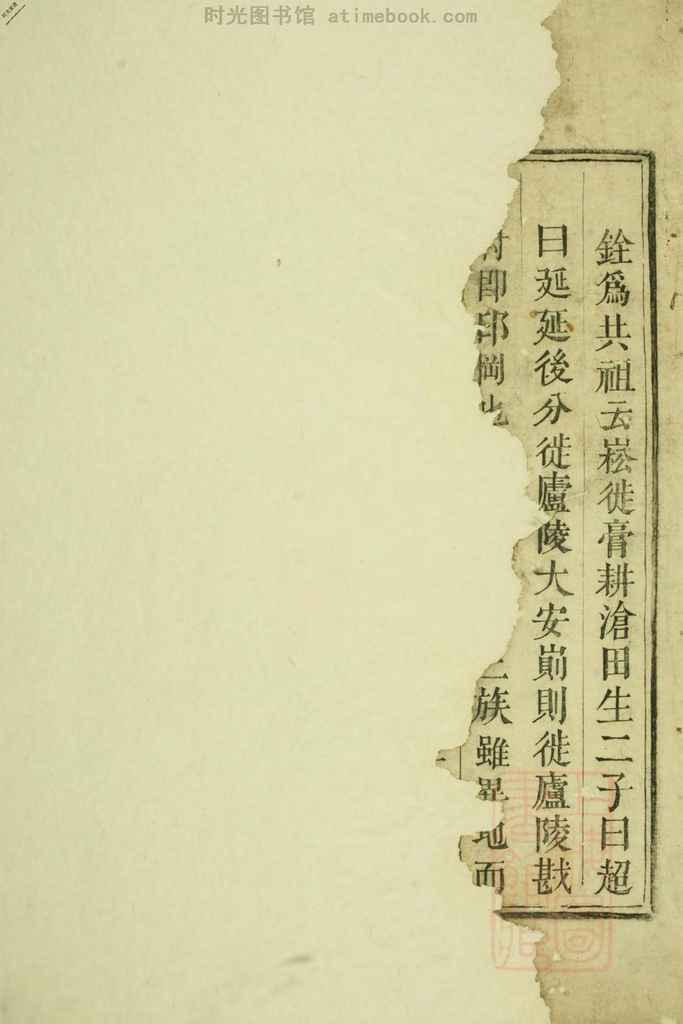 时光图书馆 atimebook.com
銓爲共祖云崧徙膏耕滄田生二子曰超
曰延延後分徙廬陵大安崱則徙廬陵戡
即邱岡也
族雖異地而